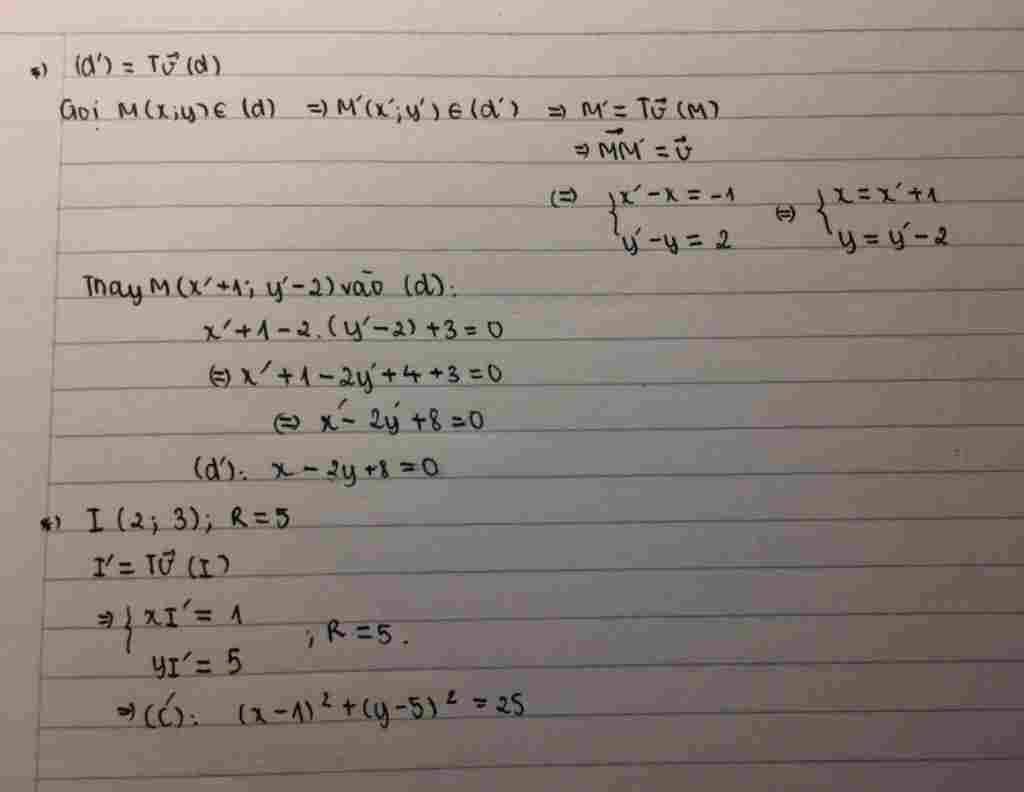 *) (d') = Tv⃗ (d)
Gọi M(x;y) ∈ (d) ⇒ M'(x';y') ∈ (d') ⇒ M' = Tv⃗ (M)
⇒ MM'⃗ = v⃗
(=) { x' - x = -1 (=) { x = x' + 1
y' - y = 2 y = y' - 2
Thay M(x'+1; y'-2) vào (d):
x' + 1 - 2.(y'-2) + 3 = 0
(=) x' + 1 - 2y' + 4 + 3 = 0
(=) x' - 2y' + 8 = 0
(d'): x - 2y + 8 = 0
*) I (2; 3); R = 5
I' = Tv⃗ (I)
⇒ { xI' = 1
; R = 5.
yI' = 5
⇒ (C'): (x-1)² + (y-5)² = 25